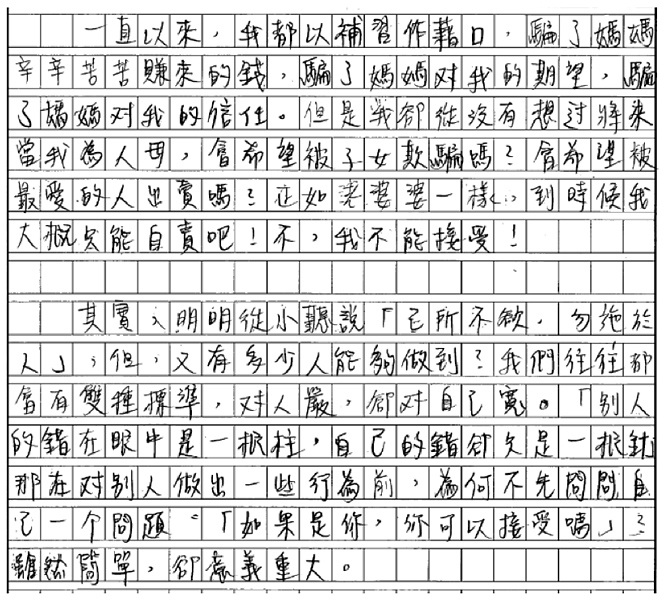 一直以來，我都以補習作藉口，騙了媽媽
辛辛苦苦賺來的錢，騙了媽媽对我的期望，騙
了媽媽对我的信任。但是我卻從沒有想过將來
當我為人母，會希望被子女欺騙嗎？會希望被
最愛的人出賣嗎？正如老婆婆一樣，到時候我
大概只能自責吧！不，我不能接受！
其實，明明從小聽說「己所不欲，勿施於
人」，但，又有多少人能夠做到？我們往往都
會有雙種標準，对人嚴，卻对自己寬。「別人
的錯在眼中是一根柱，自己的錯卻只是一根針
那在对別人做出一些行為前，為何不先問問自
己一个問題。「如果是你，你可以接受嗎」？
雖然簡單，卻意義重大。